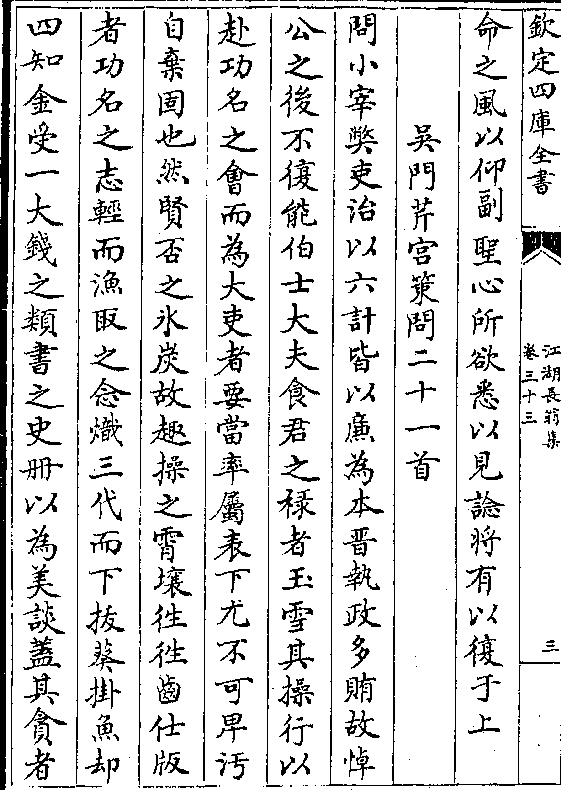 欽定四庫全書
江湖長翁集
卷三十三
三
命之風以仰副聖心所欲悉以見諗將有以復于上
吳門芹宮策問二十一首
問小宰弊吏治以六計皆以廉為本晉執政多賄故悼
公之後不復能伯士大夫食君之祿者玉雪其操行以
赴功名之會而為大吏者要當率屬表下尤不可卑汚
自棄固也然賢否之氷炭故趣操之霄壤徃徃齒仕版
者功名之志輕而漁取之念熾三代而下拔葵掛魚却
四知金受一大錢之類書之史冊以為美談蓋其貪者